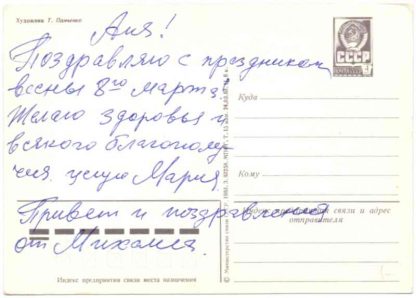 Художник Т. Панченко
Аня!
Поздравляю с праздником
весны 8го Марта!
Желаю здоровья и
всякого благополу-
чия. целую Мария.
Привет и поздравления
от Михаила.
Индекс предприятия связи места назначения
СССР
Куда
Кому
Индекс предприятия связи и адрес
отправителя
© Министерство связи СССР